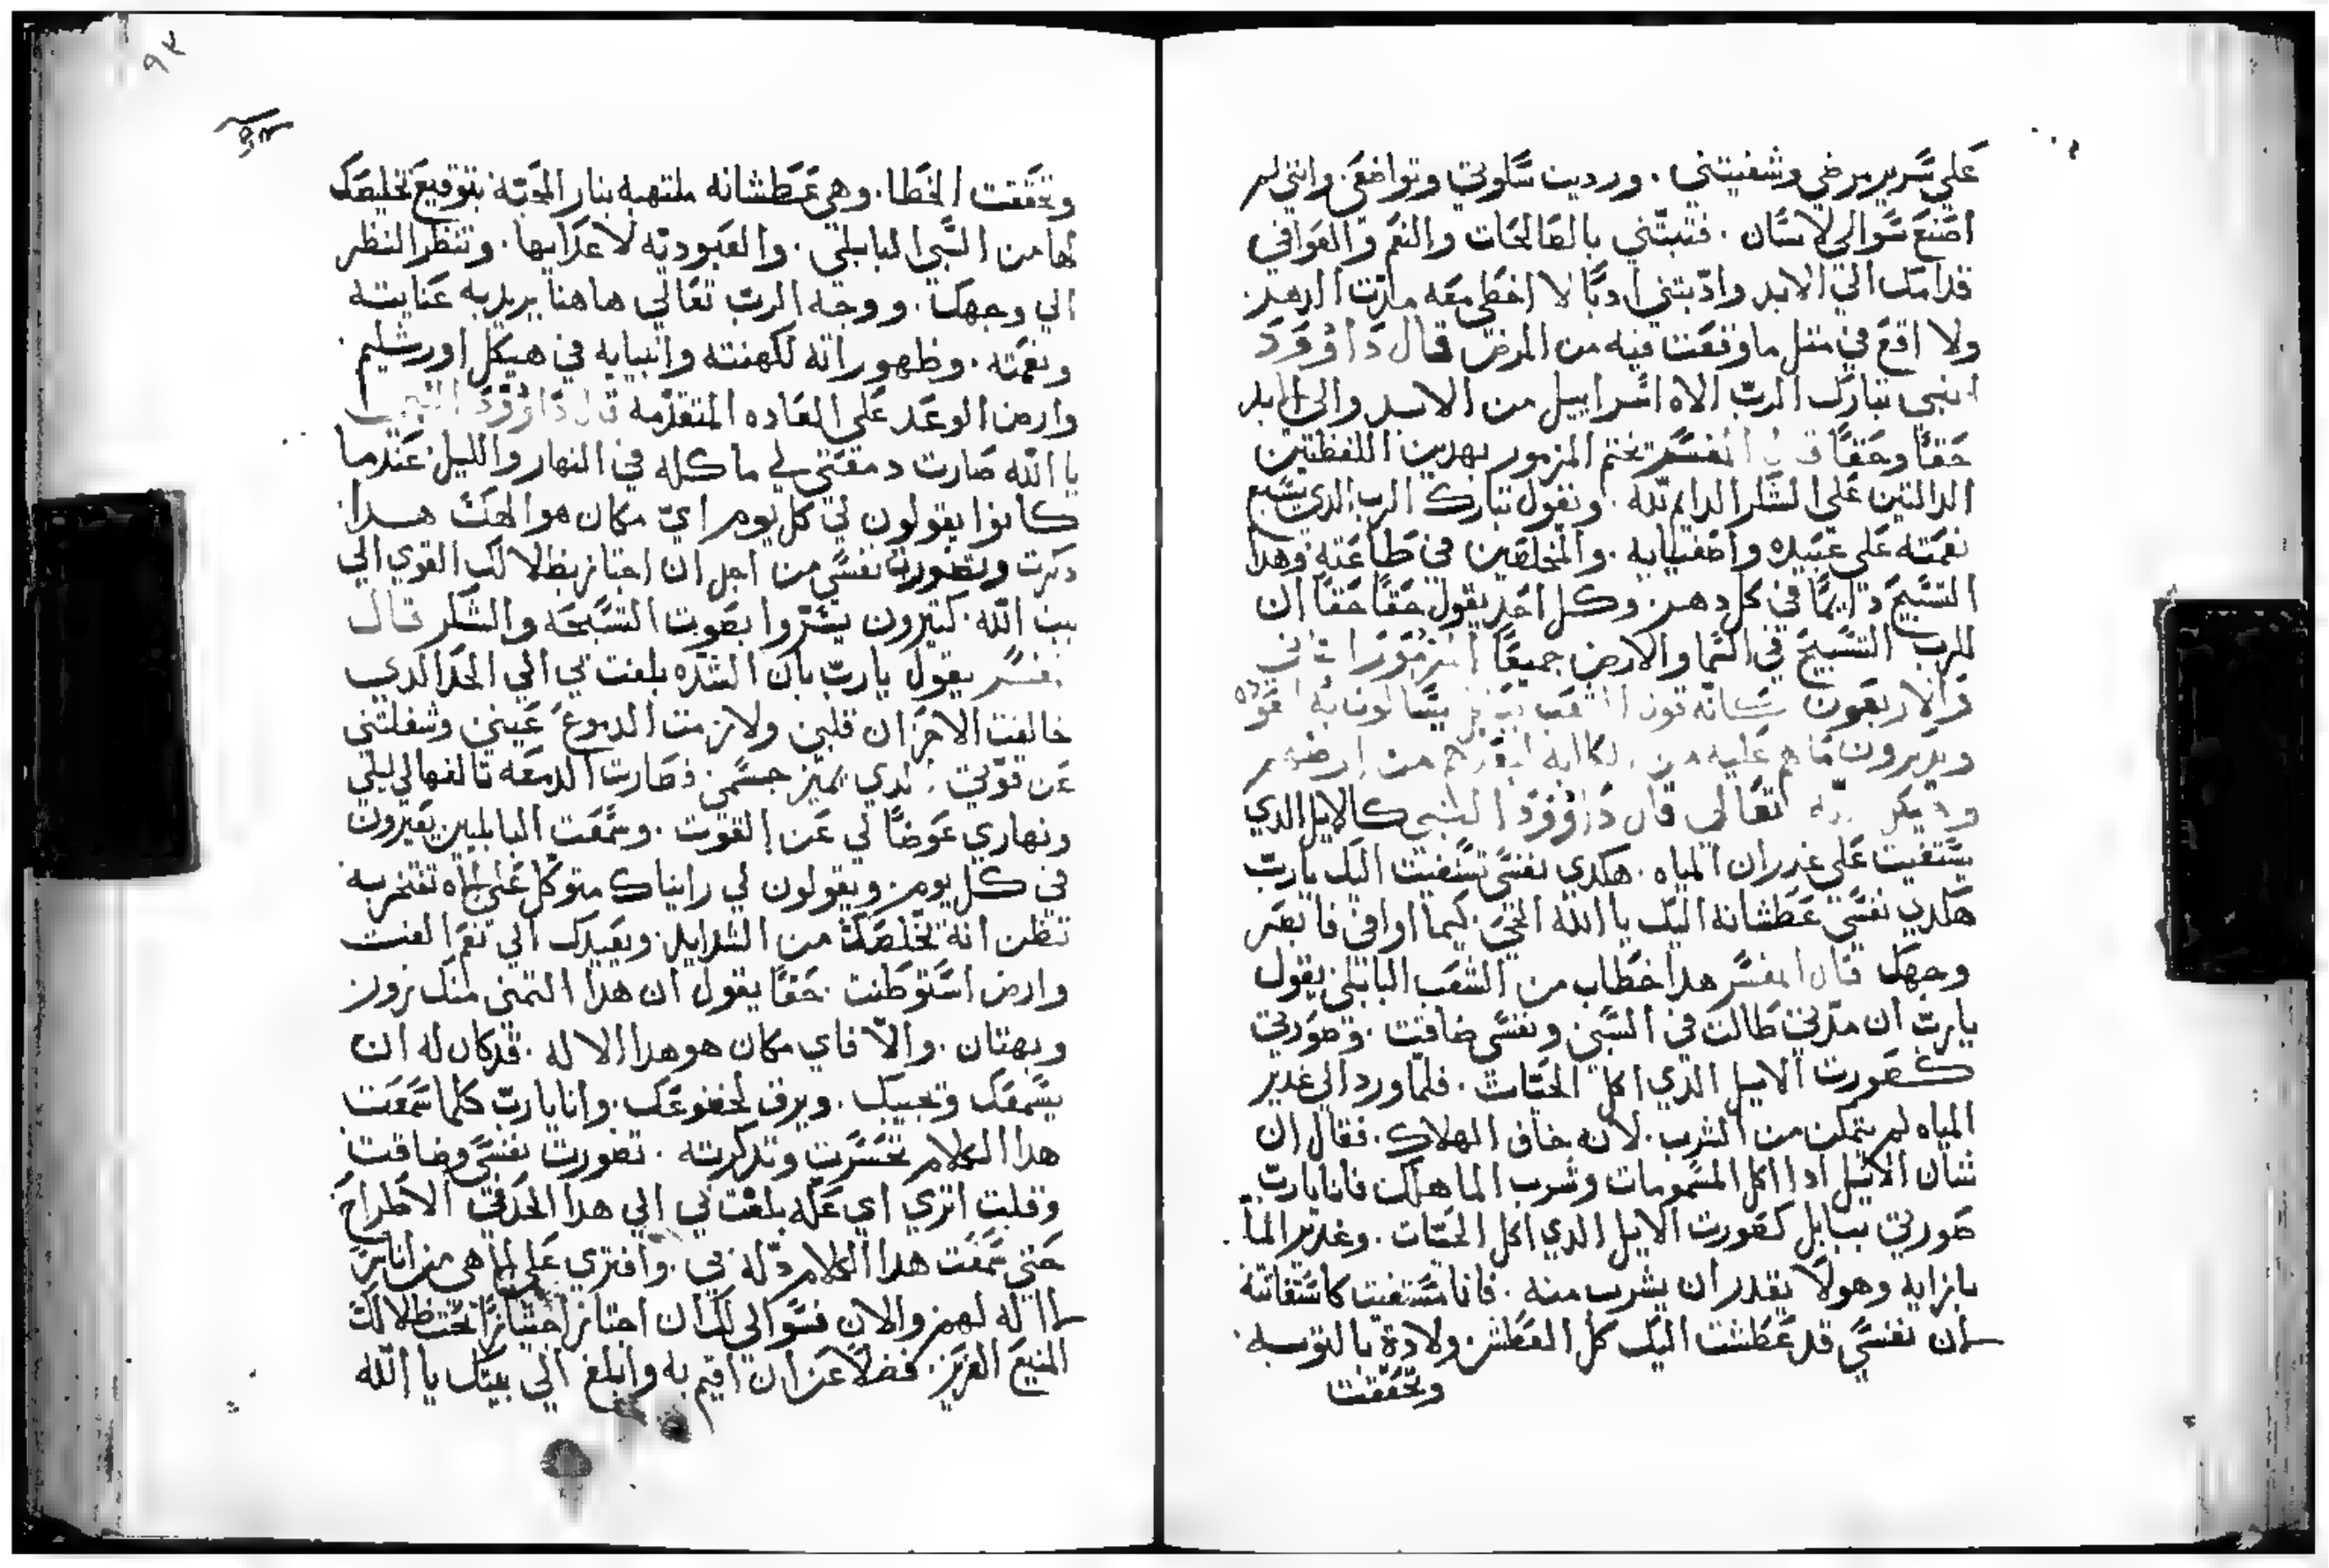 على سرير مرضي وشفيتني . ورديت سكوني وتواضعي . وانني لم
اصنع سوا لي لانسان . فتبتني بالصالحات والنعم والعوافي
قدامك الي الابد وادبتني ادبًا لا اخطي معه مدت الدهر
ولا اقع في متل ما وقعت فيه من المرض قال داوود
النبي تبارك الرب الاه اسراييل من الابد والي الابد
حقًا وحقًا قال المفسر تختم المزمور بهدين اللفظتين
الدالتين على الشكر الدايم لله . ونقول تبارك الرب الدي يسبغ
نعمته على عبيده واصفيايه . والمخلصين في طاعته وهدا
التسبيح دايمًا في كل دهر . وكل احد يقول حقًا حقًا ان
للرب التسبيح في السما والارض جميعًا المزمور الثاني
والاربعون كانه قول الشعب ببابل يتسالون به العوده
ويريدون ما هم عليه من الكابه لبعدهم من ارضهم
وهيكل الله تعالى قال داوود النبي كالايل الدي
يستغيت على غدران المياه . هكدي نفسي تستغيت اليك يارب
هكدي نفسي عطشانة اليك يا الله الحي . كيما اوافي فابصر
وجهك قال المفسر هدا خطاب من الشعب البابلي يقول
يارب ان مدتي طالت في السبي ونفسي ضاقت . وصورتي
كصورت الايل الذي اكل الحيات . فلما ورد الي غدير
المياه لم يتمكن من الشرب . لانه خاف الهلاك . فقال ان
شان الايل ادا اكل المسمومات وشرب الما هلك فانا يارب
صورتي ببابل كصورت الايل الدي اكل الحيات . وغدير الما
بازايه وهو لا يقدر ان يشرب منه . فانا مستغيت كاستغاتة
لان نفسي قد عطشت اليك كل العطش ولادة بالتوبه .
وتحققت
٩٢
وتحققت الخطا . وهي عطشانه ملتهبه بنار المحبة بتوقيع تخليصك
لها من السبي البابلي . والعبوديه لاعدايها . وتنظر النظر
الي وجهك . ووجه الرب تعالي هاهنا يريد به عنايته
ونعمته . وظهوراته لكهنته وانبيايه في هيكل اورشليم .
وارض الوعد على العاده المتقدمه قال داوود النبي
يا الله صارت دمعتي لي ماكله في النهار والليل عندما
كانوا يقولون لي كل يوم اي مكان هو الهك هدا
دكرت وتضورت نفسي من اجل ان اجتاز بظلالك القوي الي
بيت الله . كتيرون يسروا بصوت التسبحه والشكر قال
المفسر يقول يارب بان الشده بلغت بي الي الحد الدي
خالفت الاحزان قلبي ولازمت الدموع عيني وشغلتني
عن قوتي . لدي يميز جسمي . فصارت الدمعه تالفها لي ليلي
ونهاري عوضًا لي عن القوت . وسمعت البابليين يعيرون
في كل يوم . ويقولون لي رايناك متوكل على الاه تفتخر به
تظن انه يخلصك من الشدايد . ويعيدك الي نعم الفت
وارض استوطنت . حقًا يقول ان هدا التمني منك زور
وبهتان . والا فاي مكان هو هدا الاله . قد كان له ان
يسمعك ويجيبك . ويرق لخضوعك . وانا يارب كلما سمعت
هدا الكلام تحسرت وتدكرته . تضورت نفسي وضاقت
وقلت اتري اي عله بلغت بي الي هدا الحد في الاطراح
حتي سمعت هدا الكلام دلة بي . وافتري
اله لهم والان فسوالي لك ان اجتاز اجتيازًا تحت ظلالك
المنيع العزيز . فضلاً عن ان اقيم به وابلغ الي بيتك يا الله